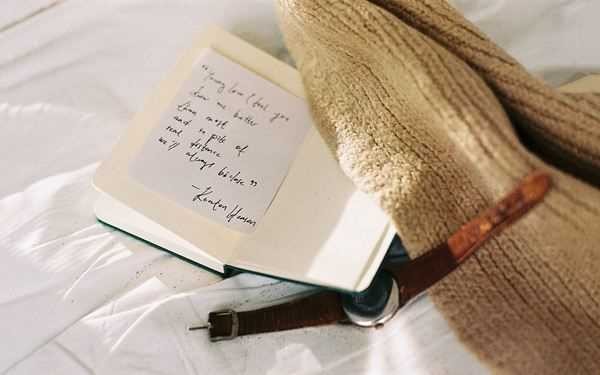 "Young love I feel you
know me better
than most
and in spite of
real distance
we'll always be close"